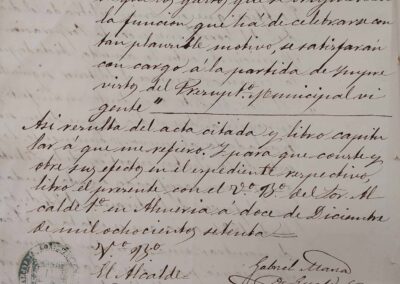 la funcion que há de celebrarse con
tan plausible motivo, se satisfarán
con cargo á la partida de Ympre
vistos del Presupto. municipal vi
gente"
Asi resulta del acta citada y libro capitu
lar a que me refiero. Y para que conste y
obre sus efectos en el expediente respectivo,
libro el presente con el Vo. Bo. del Sor. Al
calde 1o. en Almeria á doce de Diciembre
de mil ochocientos setenta.
Vo. Bo.
El Alcalde
Gabriel Maria